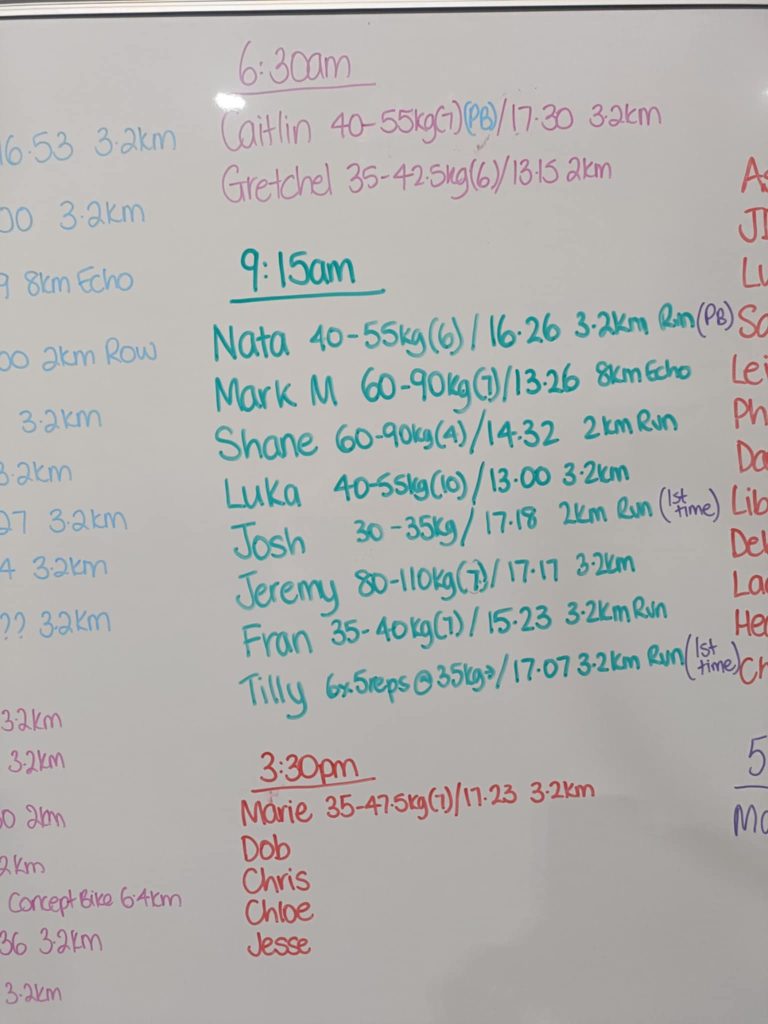 6:30am
Caitlin 40-55kg(7)(PB)/17.30 3.2km
Gretchel 35-42.5kg(6)/13.15 2km
9:15am
Nata 40-55kg(6)/16.26 3.2km Run (PB)
Mark M 60-90kg(7)/13.26 8km Echo
Shane 60-90kg(4)/14.32 2km Run
Luka 40-55kg(10)/13.00 3.2km
Josh 30-35kg/17.18 2km Run (1st time)
Jeremy 80-110kg(7)/17.17 3.2km
Fran 35-40kg(7)/15.23 3.2km Run
Tilly 6x5reps @ 35kg/17.07 3.2km Run (1st time)
3:30pm
Marie 35-47.5kg(7)/17.23 3.2km
Dob
Chris
Chloe
Jesse
16.53 3.2km
00 3.2km
9 8km Echo
00 2km Row
3.2km
3.2km
27 3.2km
4 3.2km
?? 3.2km
3.2km
3.2km
2km
2km
Concept Bike 6.4km
36 3.2km
3.2km
Lu
Lei
Ph
Lib
5